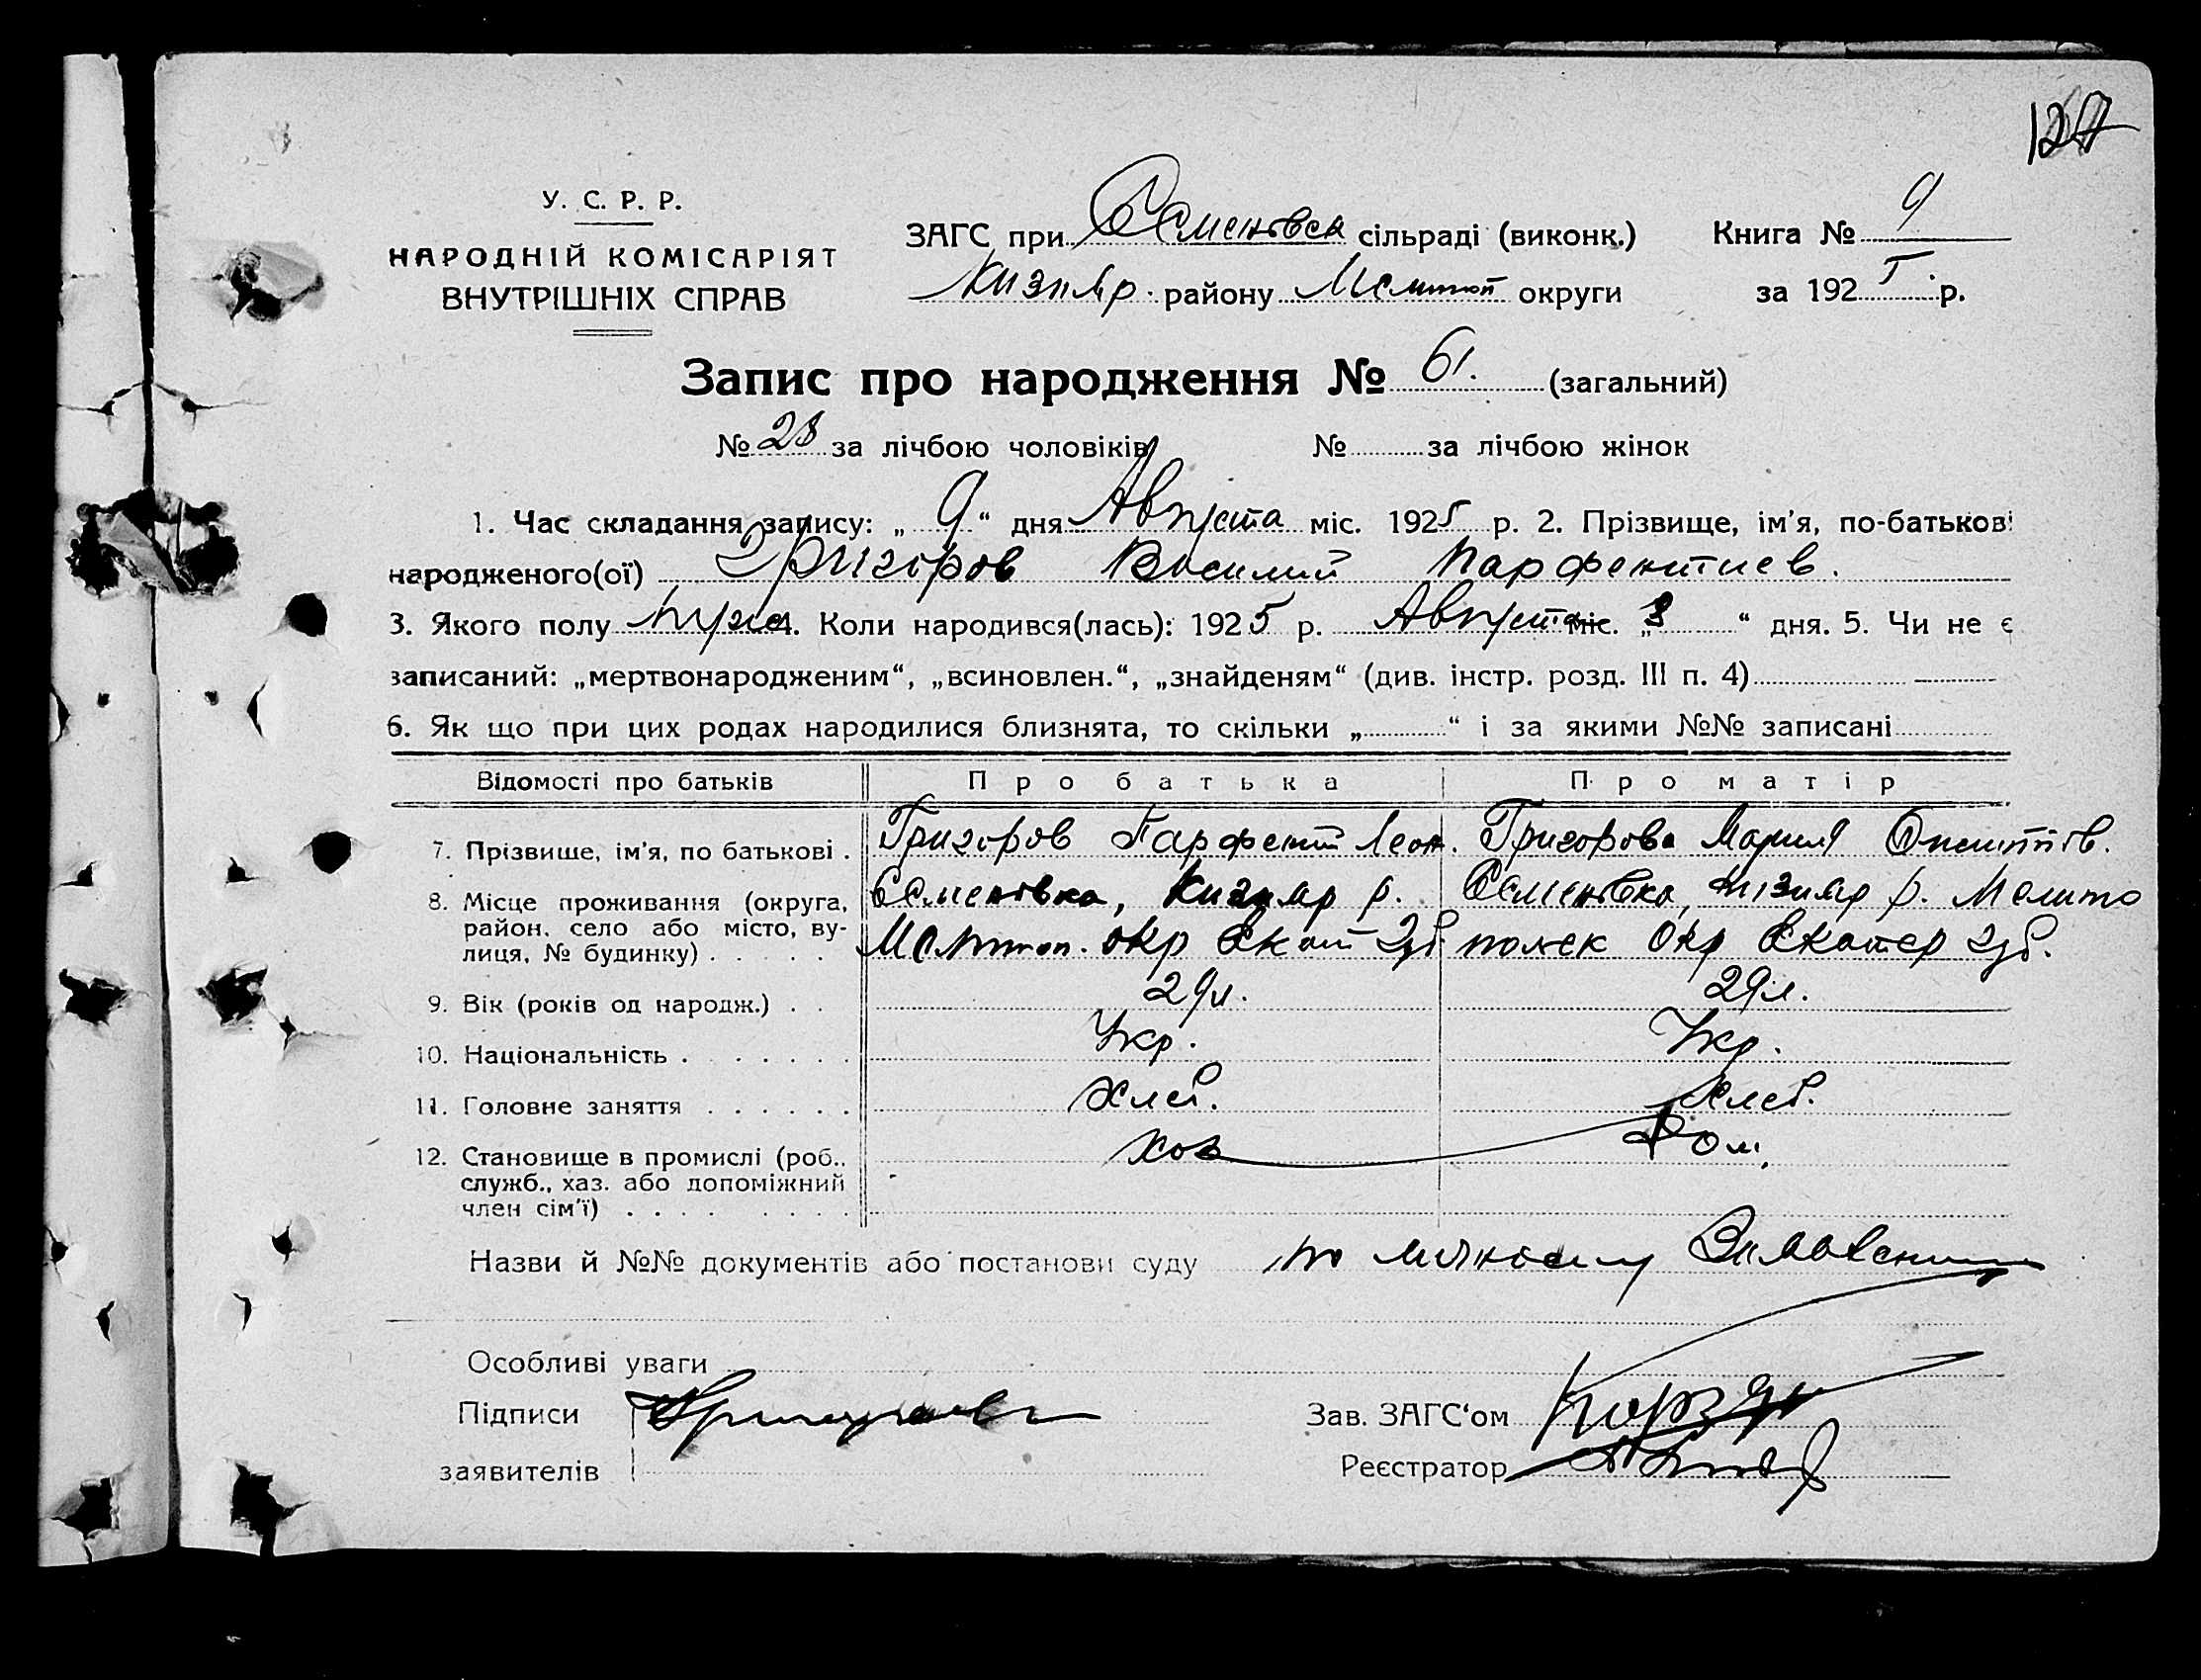 127
У. С. Р. Р.
НАРОДНІЙ КОМІСАРІЯТ
ВНУТРІШНІХ СПРАВ
ЗАГС при Семеновск сільраді (виконк.) Книга №
Кизияр. району Мелитоп округи за 1925 р.
Запис про народження № 61. (загальний)
№ 28 за лічбою чоловіків № за лічбою жінок
1. Час складання запису: „ 9 “ дня Августа міс. 1925 р. 2. Прізвище, ім'я, по-батькові
народженого(ої) Григоров Василий Парфентиев.
3. Якого полу муж. 4. Коли народився(лась): 1925 р. Августа міс. „ “ дня. 5. Чи не є
записаний: „мертвонародженим“, „всиновлен.“, „знайденям“ (див. інстр. розд. III п. 4)
6. Як що при цих родах народилися близнята, то скільки „ “ і за якими №№ записані
Відомості про батьків Про батька Про матір
7. Прізвище, ім'я, по батькові . Григоров Парфентий Леон. Григорова Мария
8. Місце проживання (округа, Семеновка, Кизияр р. Семеновка, Кизияр р. Мелито
район, село або місто, ву- Мелитоп. окр Екат губ польск Окр Екатер губ.
лиця, № будинку) . . . . .
9. Вік (років од народж.) . . 29л. 29л.
10. Національність . . . . . . Укр. Укр.
11. Головне заняття . . . . . . Хлеб. Хлеб.
12. Становище в промислі (роб., хоз Дом.
служб., хаз. або допоміжний
член сім'ї) . . . . . . . .
Назви й №№ документів або постанови суду по личному Заявлению
Особливі уваги
Підписи Григоров
заявителів
Зав. ЗАГС‘ом
Реєстратор